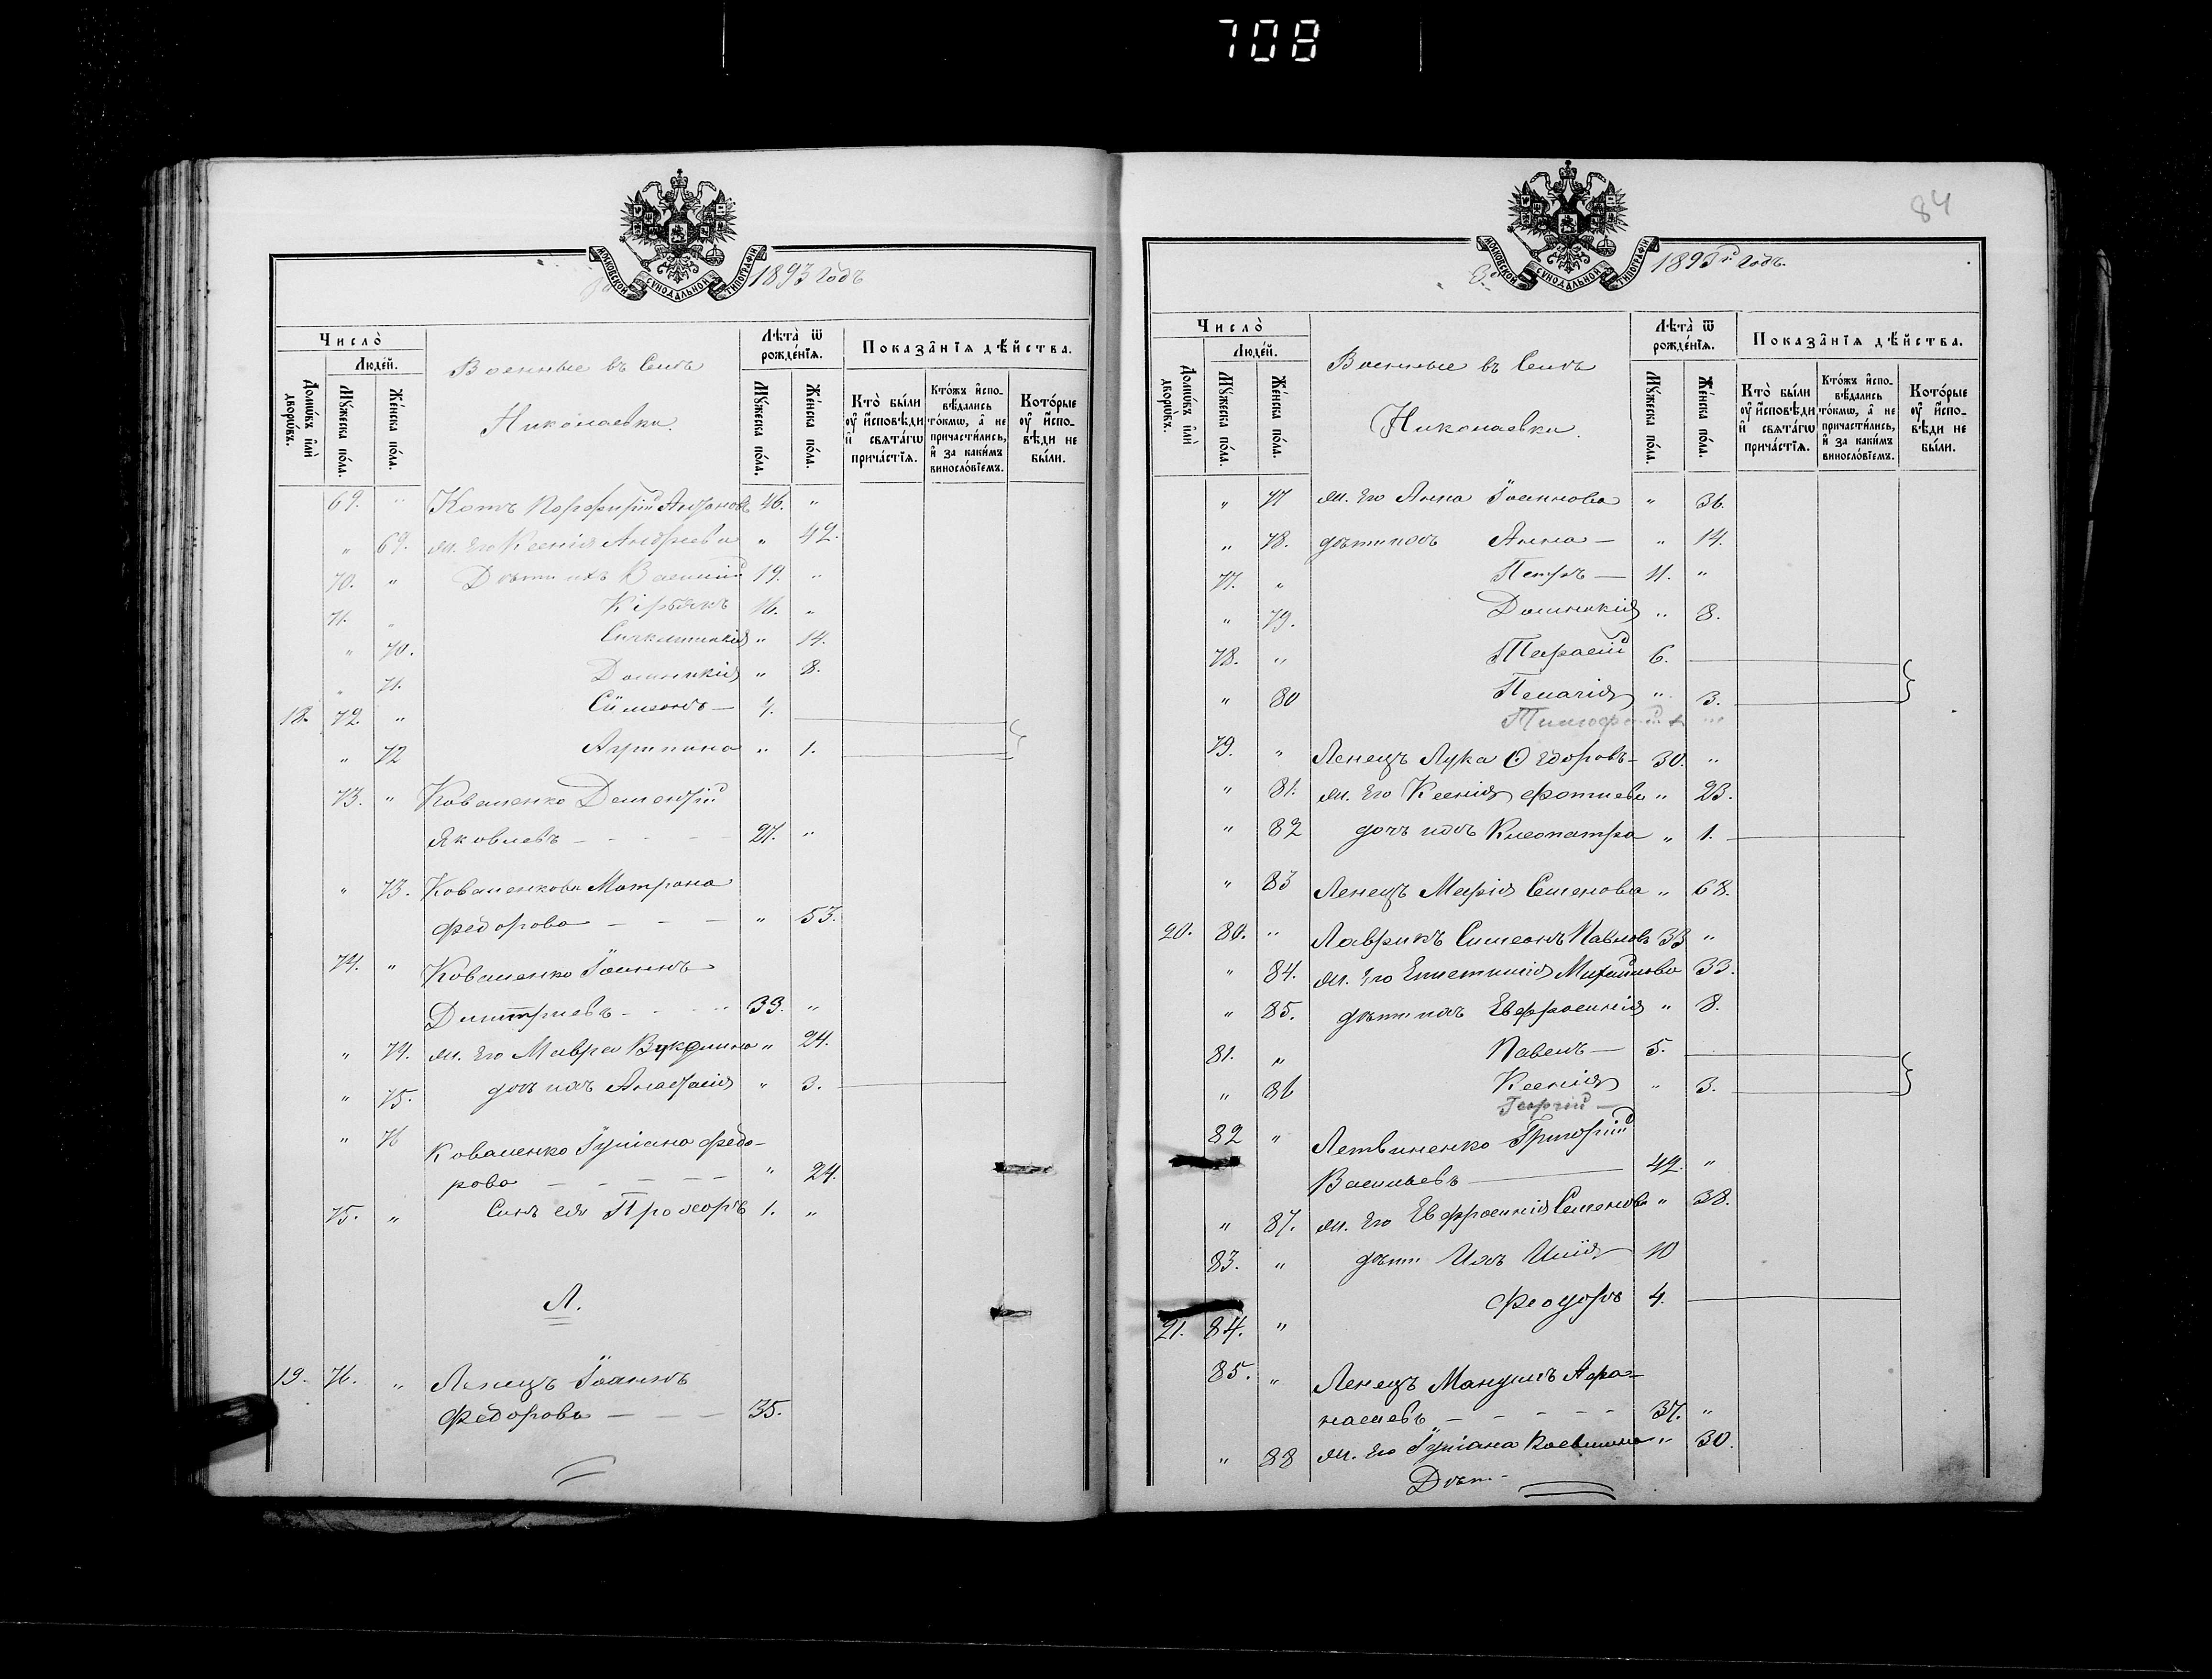 708
МОСКОВСКОЙ СѴНОДАЛЬНОЙ ТИПОГРАФІИ
1893 Годъ
Число̀
Людей.
Домѡвъ и҆лѝ дворѡвъ.
Мꙋжеска по́ла.
Же́нска по́ла.
Военные въ Селѣ
Николаевки.
Лѣта̀ ѿ рожде́нїѧ.
Мꙋжеска по́ла.
Же́нска по́ла.
Показа̑нїѧ дѣ́йства.
Кто̀ бы́ли оу҆ и҆сповѣди и҆ свѧта́гѡ прича́стїѧ.
Кто́жъ и҆спо-вѣдались то́кмѡ, а҆ не причасти́лись, и҆ за каки́мъ винослови́емъ.
Кото́рые оу҆ и҆спо-вѣди не бы́ли.
69. " Котъ Порфирій 46. "
" 69. ж. его Ксенія Андреева " 42.
70. " Дѣти ихъ Василій 19. "
71. " Кірьякъ 16. "
" 70. Синклитикія " 14.
" 71. Домникія " 8.
18. 72. " Сімеонъ — 4.
" 72 Агрипина " 1.
73. " Коваленко Дементій
Яковлевъ — 27. "
" 73. Коваленкова Матрона
Федорова — — — " 53.
74. " Коваленко Іоаннъ
Димитріевъ - - - 33. "
" 74. ж. его Мавра " 24.
" 75. дочь ихъ Анастасія " 3.
" 76 Коваленко Іуліана Федо-
рова — — — — — " 24.
75. " Сынъ ея Прохоръ 1. "
Л.
19. 76. " Ленецъ Іоаннъ
Федоровъ — — — 35.
84
МОСКОВСКОЙ СѴНОДАЛЬНОЙ ТИПОГРАФІИ
1893й Годъ.
Число̀
Людей.
Домѡвъ и҆лѝ дворѡвъ.
Мꙋжеска по́ла.
Же́нска по́ла.
Военные въ Селѣ
Николаевки.
Лѣта̀ ѿ рожде́нїѧ.
Мꙋжеска по́ла.
Же́нска по́ла.
Показа̑нїѧ дѣ́йства.
Кто̀ бы́ли оу҆ и҆сповѣди и҆ свѧта́гѡ прича́стїѧ.
Кто́жъ и҆спо-вѣдались то́кмѡ, а҆ не причасти́лись, и҆ за каки́мъ винослови́емъ.
Кото́рые оу҆ и҆спо-вѣди не бы́ли.
" 77 ж. его Анна Іоаннова " 36.
" 78. дѣти ихъ Анна — " 14.
77. " Петръ — 11. "
" 79. Домникія " 8.
78. " Тарасій 6.
" 80 Пелагія " 3.
Тимофей
79. " Ленецъ Лука Ѳедоровъ - 30. "
" 81. ж. его Ксенія Фотиева " 23.
" 82 дочь ихъ Клеопатра " 1.
" 83 Ленецъ Марія Семенова " 68.
20. 80. " Лаврикъ Симеонъ Павловъ 33 "
" 84. ж. его Епистимія Михайлова 33.
" 85. дѣти ихъ Евфросинія " 8.
81. " Павелъ — 5.
" 86 Ксенія " 3.
Георгій —
82 " Летвиненко Григорій
Васильевъ — 42. "
" 87. ж. его Евфросинія Семенова " 38.
83. " дѣти ихъ Илія 10
Феодоръ 4.
21. 84. "
85. " Ленецъ Мануилъ Афа-
насиевъ — — — — 37. "
" 88 ж. его Іуліана " 30.
Дѣти -